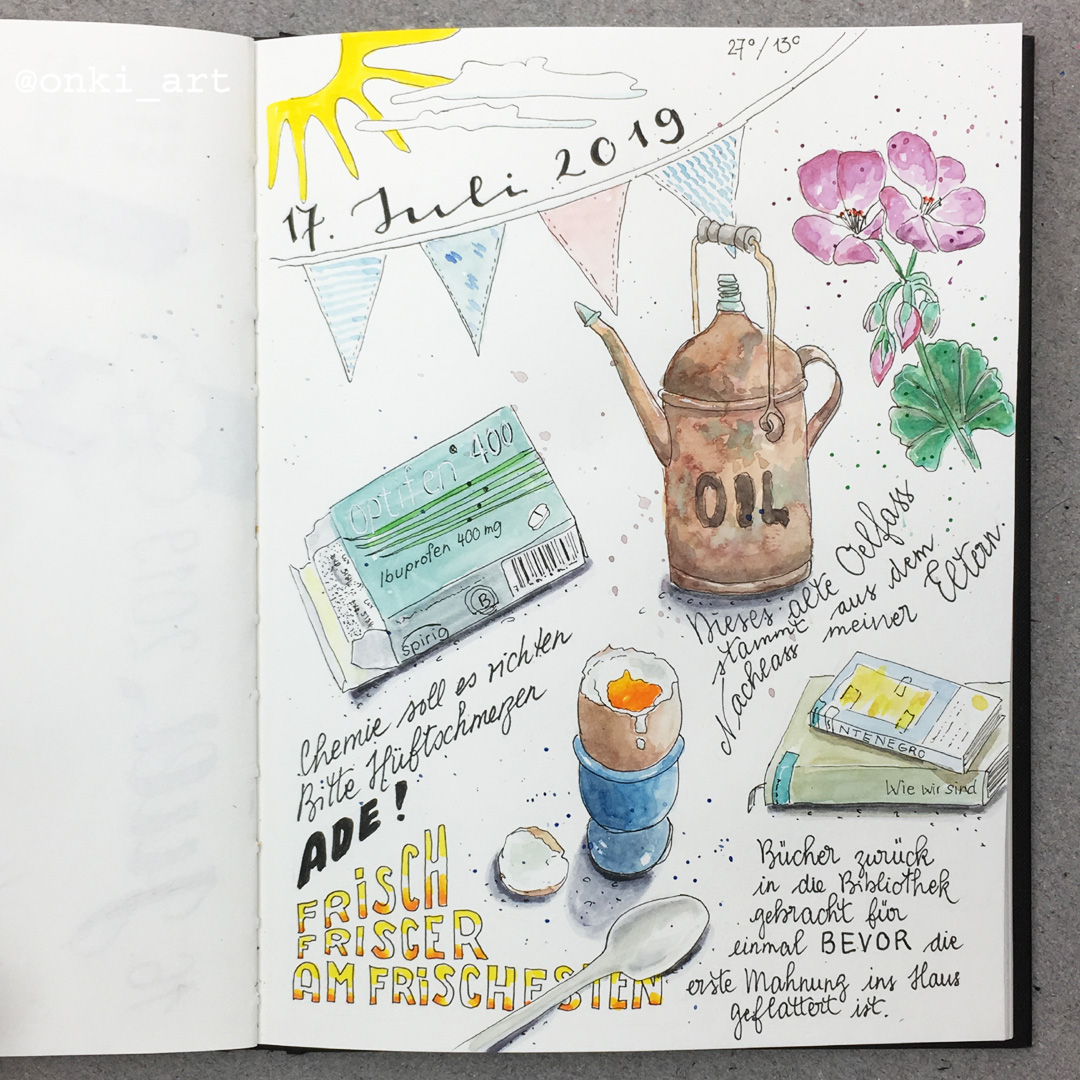 @onki_art
27°/13°
17. Juli 2019
OIL
optifen® 400
Ibuprofen 400 mg
B
Spirig
Dieses alte Oelfass
stammt aus dem
Nachlass meiner Eltern.
Chemie soll es richten
Bitte Hüftschmerzen
ADE!
NTENEGRO
Wie wir sind
FRISCH
FRISCER
AM FRISCHESTEN
Bücher zurück
in die Bibliothek
gebracht für
einmal BEVOR die
erste Mahnung ins Haus
geflattert ist.